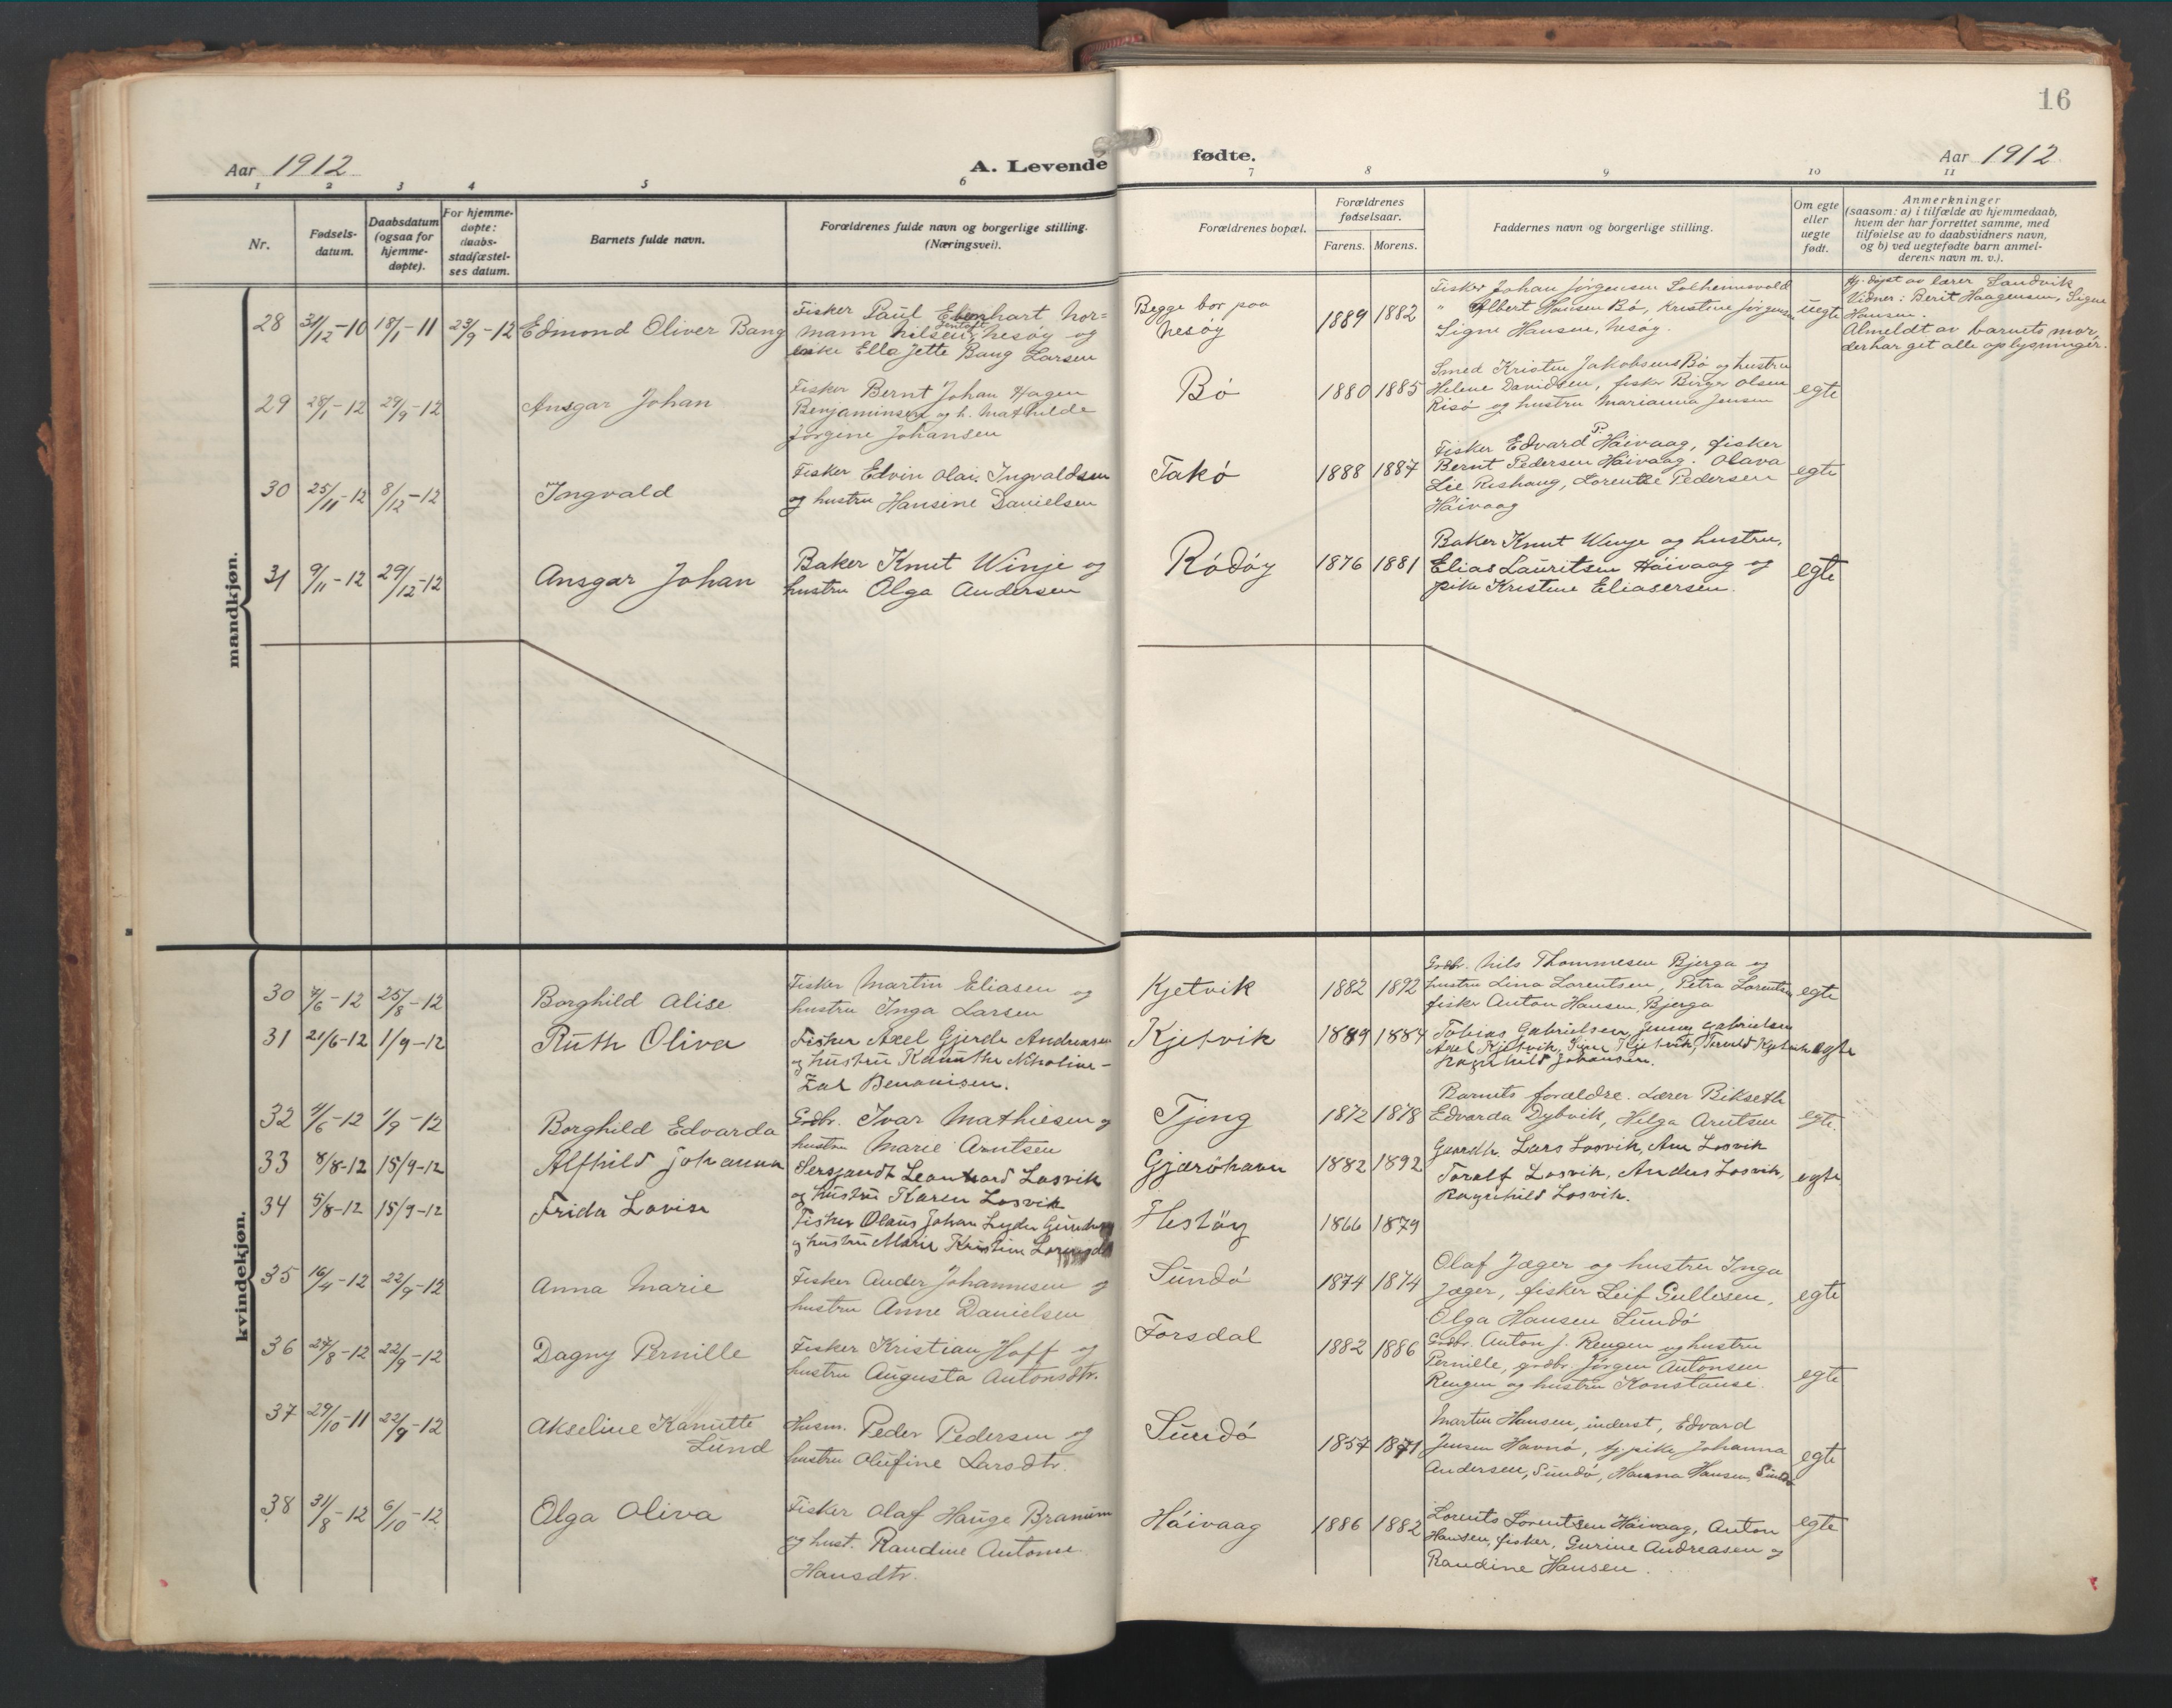 16
Aar 1912
A. Levende
fødte.
Aar 1912
1 2 3 4 5 6 7 8 9 10 11
Nr.
Fødsels-
datum.
Daabsdatum
(ogsaa for
hjemme-
døpte).
For hjemme-
døpte:
daabs-
stadfæstel-
ses datum.
Barnets fulde navn.
Forældrenes fulde navn og borgerlige stilling.
(Næringsvei).
Forældrenes bopæl.
Forældrenes
fødselsaar.
Farens. Morens.
Faddernes navn og borgerlige stilling.
Om egte
eller
uegte
født.
Anmerkninger
(saasom: a) i tilfælde av hjemmedaab,
hvem der har forrettet samme, med
tilføielse av to daabsvidners navn,
og b) ved uegtefødte barn anmel-
derens navn m. v.).
mandkjøn.
28 31/12-10 18/1-11 29/9-12 Edmond Oliver Bang
Fisker Paul Ebenhart Nor-
mann Nilsen Nesøy og
pike Ella Jette Bang Larsen
Begge bor paa
Nesøy
1889 1882
Fisker Johan Jørgensen Solheimsvold
" Albert Hansen Bø, Kristine Jørgensen
Signe Hansen, Nesøy.
uegte
Hj. døpt av lærer Sandvik
Vidner: Berit Haagensen, Signe
Hansen.
Anmeldt av barnets mor,
der har git alle oplysninger.
29 28/1-12 29/9-12 Ansgar Johan
Fisker Bernt Johan Hagen
Benjaminsen og h. Mathilde
Jørgine Johansen
Bø
1880 1885
Smed Kristen Jakobsens Bø og hustru
Helene Davidsen, fisker Birger Olsen
Risø og hustru Marianna Jensen
egte
30 25/11-12 8/12-12 Ingvald
Fisker Edvin Olai Ingvaldsen
og hustru Hansine Danielsen
Takø
1888 1887
Fisker Edvard P. Håivaag, fisker
Bernt Pedersen Håivaag. Olava
Lie Rishaug, Lorentze Pedersen
Håivaag
egte
31 9/11-12 29/12-12 Ansgar Johan
Baker Knut Winje og
hustru Olga Andersen
Rødøy
1876 1881
Baker Knut Winje og hustru,
Elias Lauritsen Håivaag og
pike Kristine Eliasersen.
egte
kvindekjøn.
30 7/6-12 25/8-12 Borghild Alise
Fisker Martin Eliasen og
hustru Inga Larsen
Kjetvik
1882 1892
Grdbr. Nils Thommesen Bjerga og
hustru Lina Lorentsen, Petra Lorentsen
fisker Anton Hansen, Bjerga
egte
31 21/6-12 1/9-12 Ruth Oliva
Fisker Axel Gjerde Andreasen
og hustru Kanutha Nkoline-
Benonisen.
Kjetvik
1889 1884
Tobias Gabrielsen, Jenny Gabrielsen
Axel Kjetvik, Kjetvik, Kjetvik
Ragnhild Johansen.
egte
32 4/6-12 1/9-12 Borghild Edvarda
Grdbr. Ivar Mathiesen og
hustru Marie Arntsen
Tjong
1872 1878
Barnets forældre. Lærer Bikseth
Edvarda Dybvik, Helga Arntsen
egte.
33 8/8-12 15/9-12 Alfhild Johanna
Sersjandt Leonhard Losvik
og hustru Karen Losvik
Gjærøhavn
1882 1892
Gaardb. Lars Losvik, Ane Losvik
Toralf Losvik, Anders Losvik,
Ragnhild Losvik.
egte
34 5/8-12 15/9-12 Frida Lovise
Fisker Olaus Johan Lyder
og hustru Marie Kristine
Hestøy
1866 1879
35 16/4-12 22/9-12 Anna Marie
Fisker Ander Johannesen og
hustru Anne Danielsen
Sundø
1874 1874
Olaf Jæger og hustru Inga
Jæger, fisker Leif Gullesen,
Olga Hansen Sundø
egte
36 27/8-12 22/9-12 Dagny Pernille
Fisker Kristian Hoff og
hustru Augusta Antonsdtr.
Forsdal
1882 1886
Grdbr. Anton J. Rengen og hustru
Pernille, grdbr. Jørgen Antonsen
Rengen og hustru Konstanse.
egte
37 29/10-11 22/9-12 Akseline Kanutte
Lund
Husm. Peder Pedersen og
hustru Olufine Larsdtr.
Sundø
1857 1871
Martin Hansen, inderst, Edvard
Jensen Havnø, tj. pike Johanna
Andersen, Sundø, Hanna Hansen, Sundø
egte
38 31/8-12 6/10-12 Olga Oliva
Fisker Olaf Hauge Bramum
og hust. Randine Antone
Hansdtr.
Håivaag
1886 1882
Lorents Lorentsen Håivaag, Anton
Hansen, fisker, Gurine Andreasen og
Randine Hansen.
egte